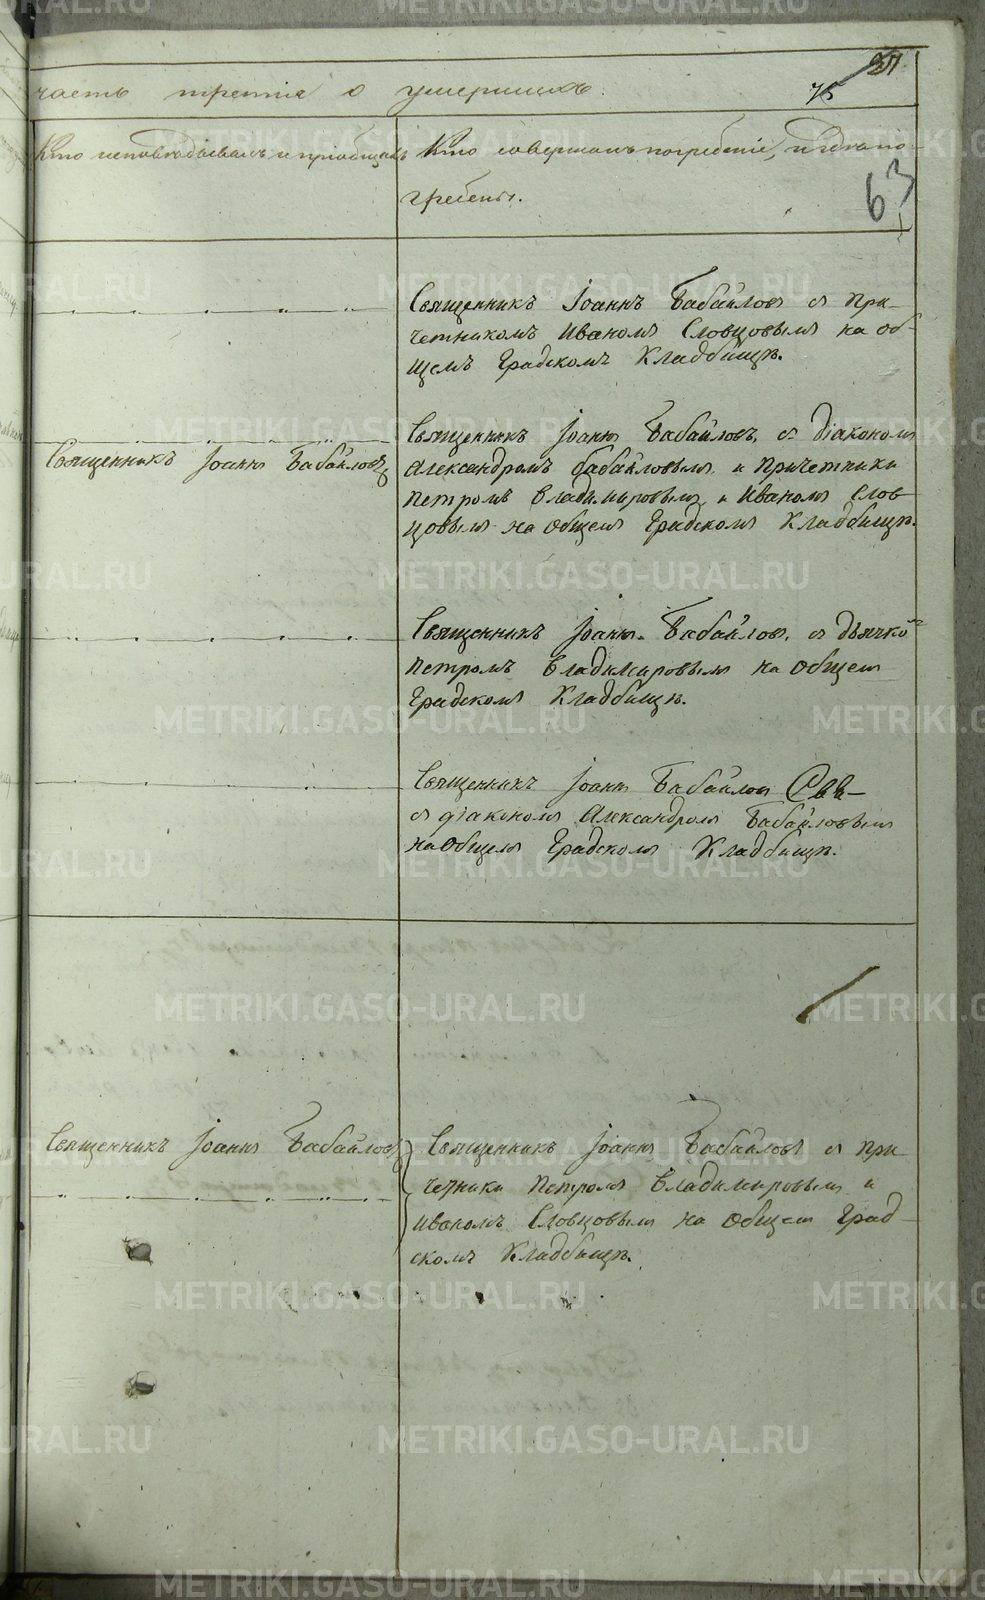 21
75
часть третія о умершихъ.
Кто исповѣдывалъ и пріобщалъ
Кто совершалъ погребеніе, и гдѣ по-
гребены.
63
Священникъ Іоаннъ Бабайловъ съ при-
четникомъ Иваномъ Словцовымъ на об-
щемъ Градскомъ Кладбищѣ.
Священникъ Іоаннъ Бабайловъ
Священникъ Іоаннъ Бабайловъ, съ діакономъ
Александромъ Бабайловымъ и причетники
Петромъ Владимировымъ и Иваномъ Слов-
цовымъ на общемъ Градскомъ Кладбищѣ.
Священникъ Іоаннъ Бабайловъ, съ дьячко
Петромъ Владимировымъ на общемъ
Градскомъ Кладбищѣ.
Священникъ Іоаннъ Бабайловъ
съ діакономъ Александромъ Бабайловымъ
на общемъ Градскомъ Кладбищѣ.
Священникъ Іоаннъ Бабайловъ
Священникъ Іоаннъ Бабайловъ съ при
четники Петромъ Владимировымъ и
Иваномъ Словцовымъ на общемъ Град-
скомъ Кладбищѣ.
METRIKI.GASO-URAL.RU